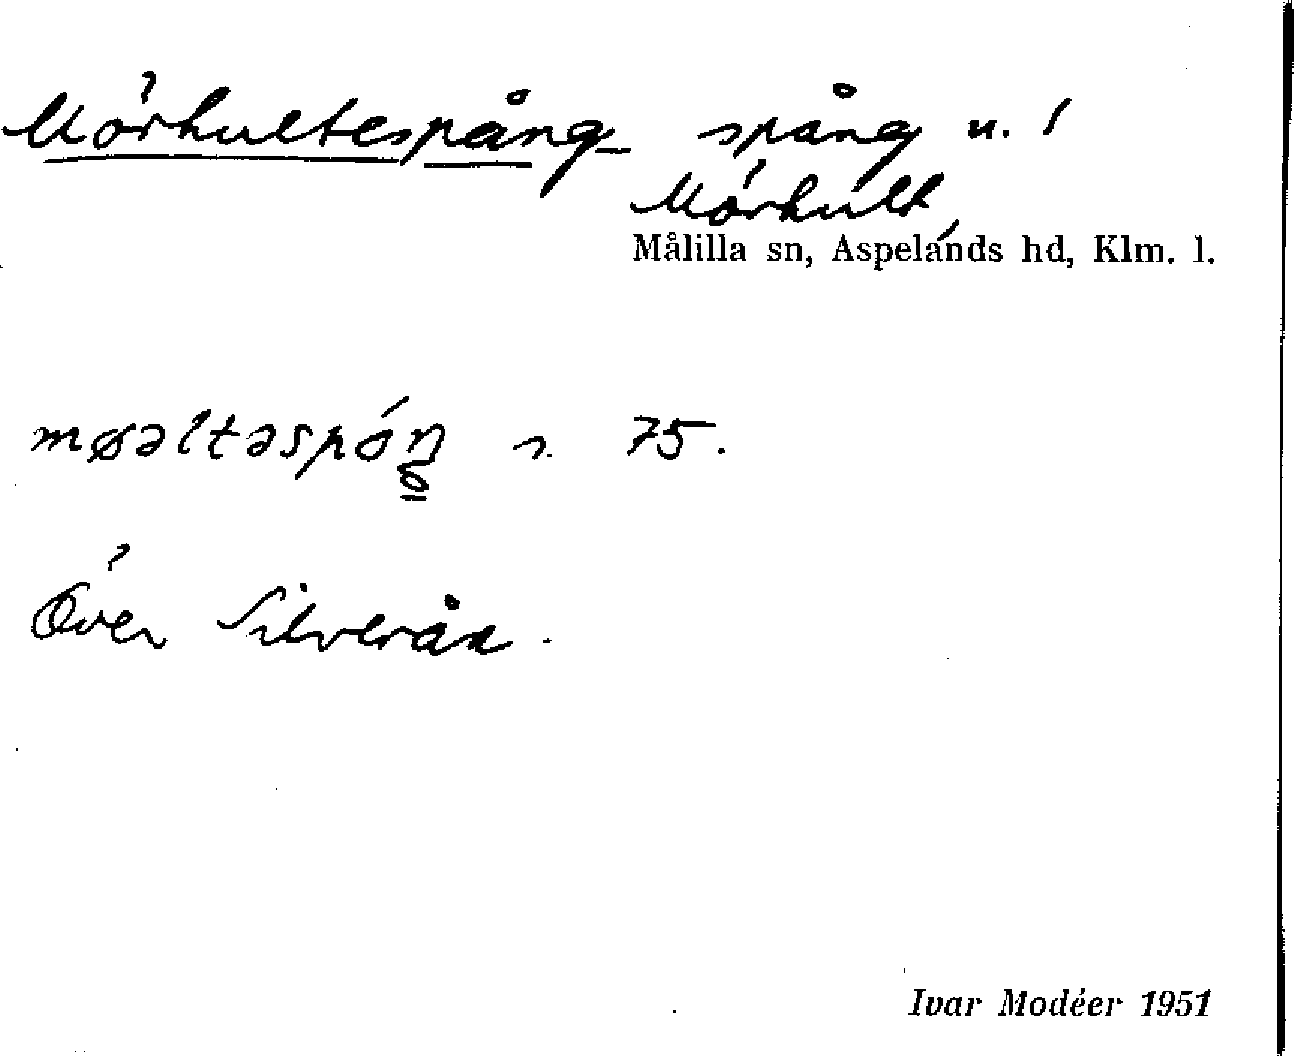 Mörhultespång spång n. i
Mörhult,
Målilla sn, Aspelands hd, Klm. l.
møəltəspóŋ̱ s. 75.
Över Silverån.
Ivar Modéer 1951